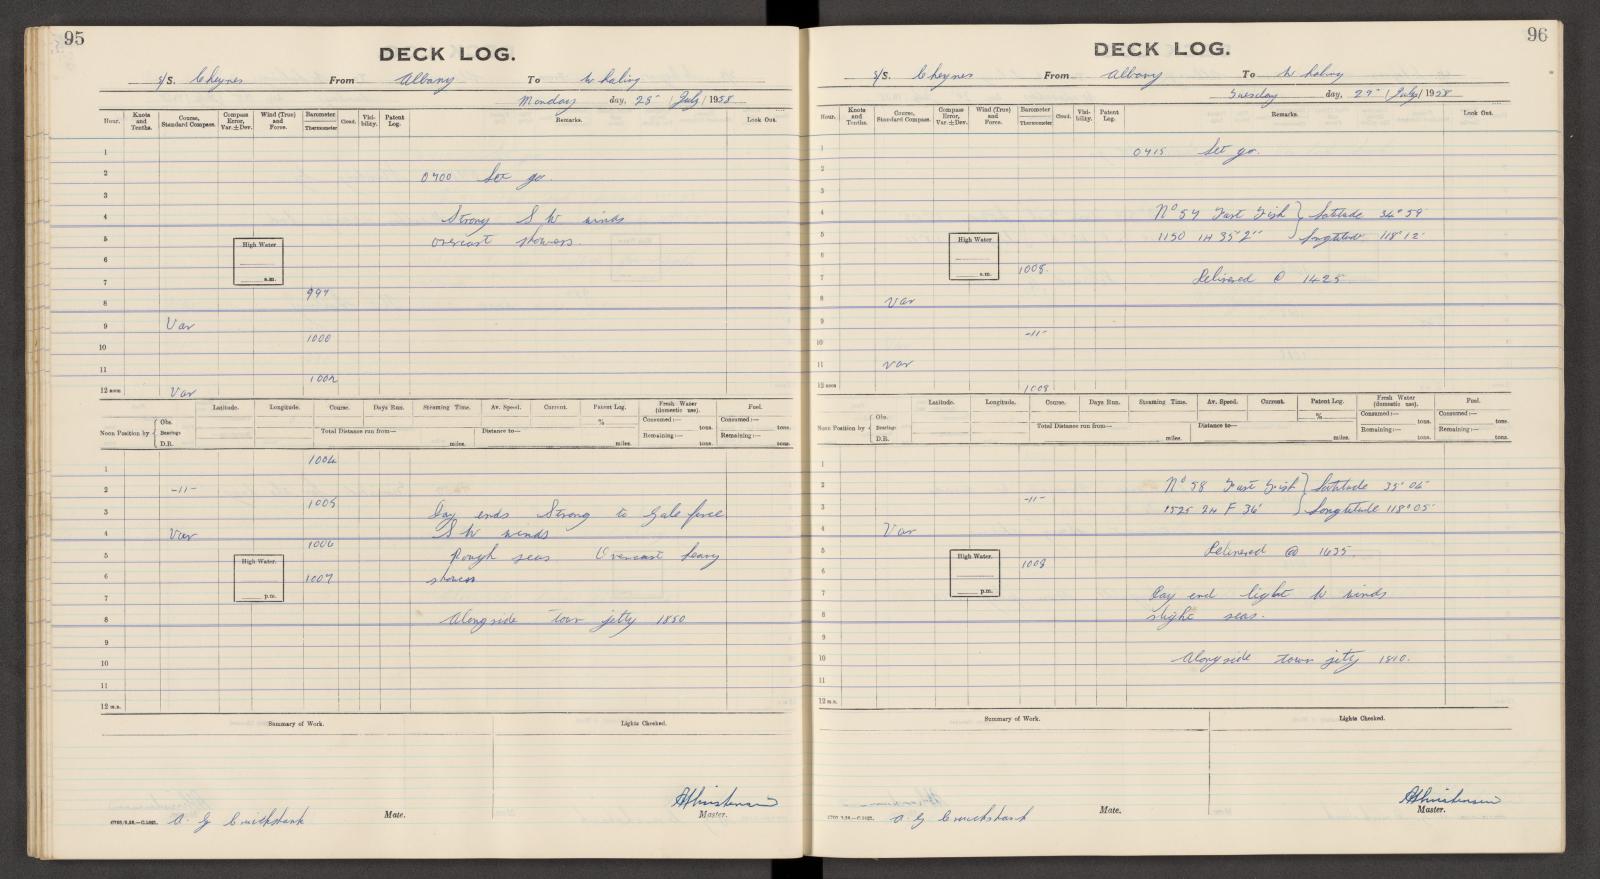 95
DECK LOG.
S/S. Cheynes From Albany To Whaling
Monday day, 28 / July / 1958
Hour. Knots and Tenths. Course, Standard Compass. Compass Error, Var. ± Dev. Wind (True) and Force. Barometer Thermometer Cloud. Visibility. Patent Log. Remarks. Look Out.
1
2 0700 Set go.
3
4 Strong S W winds
5 overcast showers.
High Water
6
a.m.
7
8 997
9 Var
10 1000
11
12 noon Var 1002
Latitude. Longitude. Course. Days Run. Steaming Time. Av. Speed. Current. Patent Log. Fresh Water (domestic use). Fuel.
Noon Position by Obs. Bearings D.R. % Consumed:— tons. Consumed:— tons.
Total Distance run from— miles. Distance to— miles. Remaining:— tons. Remaining:— tons.
1 1004
2 -11-
3 1005 Day ends Strong to Gale force
4 Var S W winds
5 1006 Rough seas Overcast heavy
High Water.
6 1007 showers
p.m.
7
8 Alongside town jetty 1850
9
10
11
12 m.n.
Summary of Work. Lights Checked.
A. G Cruickshank Mate. Master.
96
DECK LOG.
S/S. Cheynes From Albany To Whaling
Tuesday day, 29 / July / 1958
Hour. Knots and Tenths. Course, Standard Compass. Compass Error, Var. ± Dev. Wind (True) and Force. Barometer Thermometer Cloud. Visibility. Patent Log. Remarks. Look Out.
1 0715 Set go.
2
3
4 No 57 Fast Fish } Latitude 34° 59'
5 1150 1H 35' 2" Longtitude 118° 12'
High Water
6
a.m.
7 1008. Delivered @ 1425
8 Var
9
10 -11-
11 Var
12 noon 1008
Latitude. Longitude. Course. Days Run. Steaming Time. Av. Speed. Current. Patent Log. Fresh Water (domestic use). Fuel.
Noon Position by Obs. Bearings D.R. % Consumed:— tons. Consumed:— tons.
Total Distance run from— miles. Distance to— miles. Remaining:— tons. Remaining:— tons.
1
2 No 58 Fast Fish } Latitude 35° 04'
3 -11- 1525 2H F 36' Longtitude 118° 05'
4 Var
5 Delivered @ 1635.
High Water.
6 1008
p.m.
7 Day end light W winds
8 slight seas.
9
10 Alongside town jetty 1810.
11
12 m.n.
Summary of Work. Lights Checked.
A. G Cruickshank Mate. Master.